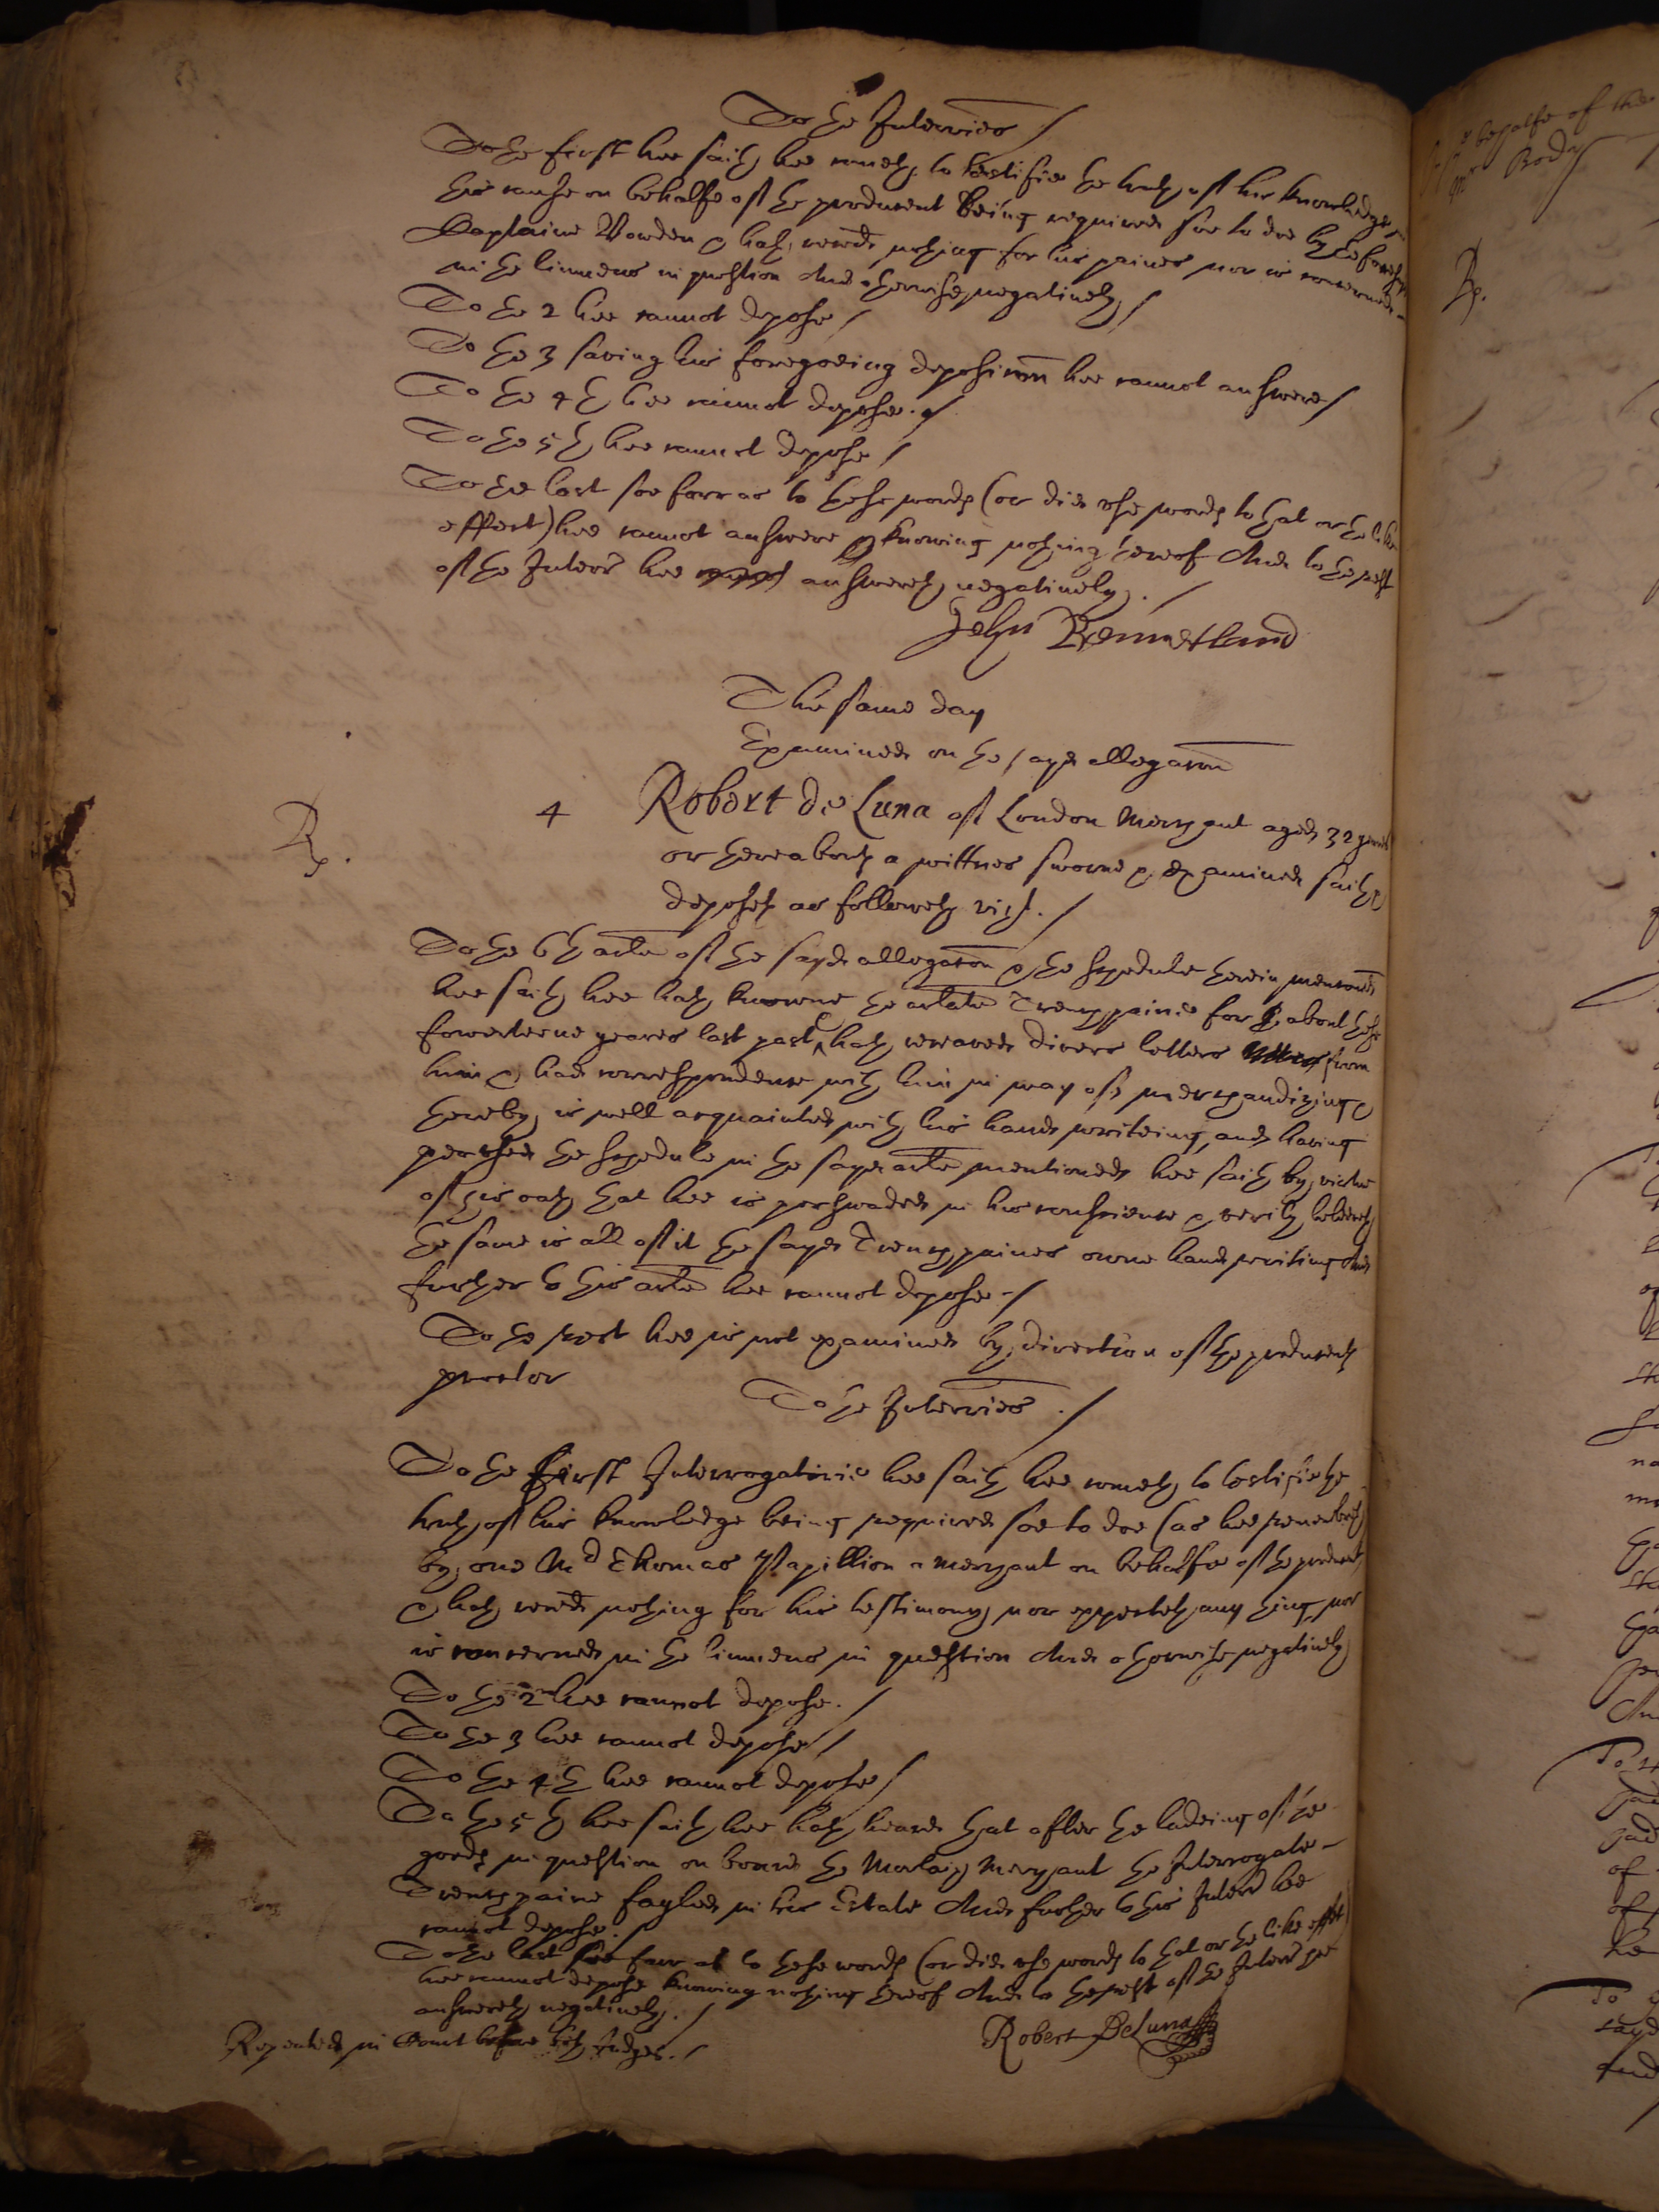 To the Interries /
To the first hee saith hee cometh to testifie the truth of his knowledge in
this cause on behalfe of the producent being required soe to doe by the foresd
Captaine Vowden & hath receed nothing for his paines nor is concerned
in the linnens in question And otherwise negatively /
To the 2 hee cannot depose /
To the 3 saving his foregoeing deposicon hee cannot answere /
To the 4th hee cannot depose. /
To the 5th hee cannot depose /
To the last soe farr as to these words (or did use words to that or the like
effect) hee cannot answere knowing nothing thereof And to the rest
of the Interrs hee answereth negatively. /
John Bennetland
The same day
Examined on the sayd allegacon
Rp. 4 Robert de Luna of London Merchant aged 32 yeares
or thereabouts a wittnes sworne & examined saith &
deposeth as followeth vizt. /
To the 6th arle of the sayd allegacon & the schedule therein menconed
hee saith hee hath knowne the arlate Trenchpaine for about these
fowerteene yeares last past & hath receaved divers letters from
him & had correspondence with him in way of merchandizing &
thereby is well acquainted with his hand writeing, and having
perused the schedule in the sayd arle mentioned hee saith by virtue
of his oath that hee is perswaded in his conscience & verily beleeveth
the same is all of it the sayd Trenchpaines owne hand writing And
further to this arle hee cannot depose - /
To the rest hee is not examined by direction of the producents
proctor
To the Interries . /
To the first Interrogatorie hee saith hee cometh to testifie the
truth of his knowledge being required soe to doe (as hee remembreth)
by one Mr Thomas Papillion a merchant on behalfe of the producent
& hath receed nothing for his testimony nor expecteth any thing, nor
is concerned in the linnens in question And otherwise negatively
To the 2 hee cannot depose. /
To the 3 hee cannot depose /
To the 4th hee cannot depose /
To the 5th hee saith hee hath heard that after the ladeing of the
goods in question on board the Morlaix Merchant the Interrogate
Trenchpaine fayled in his Estate And further to this Interr hee
cannot depose. /
To the last soe farr as to these words (or did use words to that or the like effect)
hee cannot depose knowing nothing thereof And to the rest of the Interr hee
answereth negatively. /
Repeated in Court before both Judges. /
Robert DeLuna
behalfe of the
Mr Body
Rp.